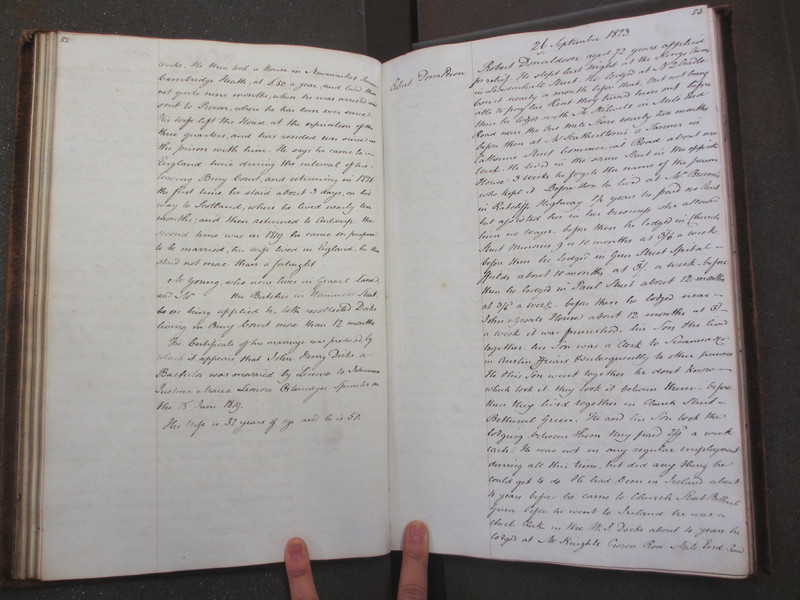 52
weeks. He then took a House in Newmarket Terrace
Cambridge Heath, at £50 a year, and lived there
not quite nine months, when he was arrested and
sent to Prison, where he has been ever since.
His wife left the House at the expiration of the
three quarters, and has resided ever since in
the prison with him. He says he came to
England twice during the interval of his
leaving Bury Court, and returning in 1821
the first time he staid about 3 days, on his
way to Scotland, where he lived nearly ten
months, and then returned to Antwerp. the
second time was in 1819. he came on purpose
to be married, his wife lived in England, he then
staid not more than a fortnight
Mr Young, who now lives in Gravel Lane,
and Mr the Butcher in Street,
on being applied to, both recollected Dirks
living in Bury Court more than 12 months
The Certificate of his marriage was produced, by
which it appears that John Henry Dirks a
Bachelor was married by License to Johanna
Justina Maria Leonora Spinster on
the 15 June 1819.
His wife is 32 years of age and he is 50.
53
26 September 1823
Robert Donaldson
Robert Donaldson aged 72 years applied
for relief. He slept last night at the Kings Arms
in Leadenhall Street. He lodged at
Court nearly a month before that, but not being
able to pay his Rent they turned him out before
then he lodged with Mr in Mile End
Road near the one Mile Stone nearly two months
before then at Mr Featherstone's a Tavern in
Catherine Street Commercial Road about one
week. He lived in the same Street in the opposite
House 3 weeks he forgets the name of the person
who kept it. Before then he lived at Mrs
in Ratcliffe Highway 1½ years he paid no Rent
but assisted her in her business she allowed
him no wages. before then he lodged in Church
Street Minories 9 or 10 months at a week
before then he lodged in Gun Street Spital-
fields about 10 months at a week. before
then he lodged in Paul Street about 12 months
at a week. before then he lodged near
John House about 12 months at
a week it was furnished. his Son &c lived
together. his Son was a Clerk to
in Austin Friars & subsequently to other persons
He & his Son went together he dont know
which took it. they took it between them. before
then they lived together in Church Street
Bethnal Green. He and his Son took the
lodging between them they paid a week
each. He was not in any regular employment
during all this time, but did any thing he
could get to do. He had been in Ireland about
4 years before he came to Church Street Bethnal
Green before he went to Ireland he was a
check Clerk in the W. I. Docks about 4 years he
lodged at Mr Knights Crown Row Mile End Road